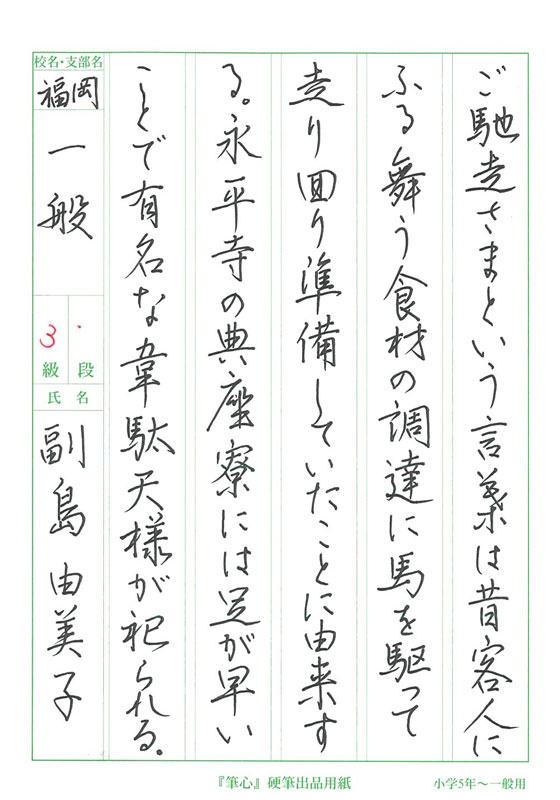 ご馳走さまという言葉は昔客人に
ふる舞う食材の調達に馬を駆って
走り回り準備していたことに由来す
る。永平寺の典座寮には足が早い
ことで有名な韋駄天様が祀られる。
校名・支部名
福岡
一般
段
・
級
3
氏名
副島由美子
『筆心』硬筆出品用紙
小学5年～一般用